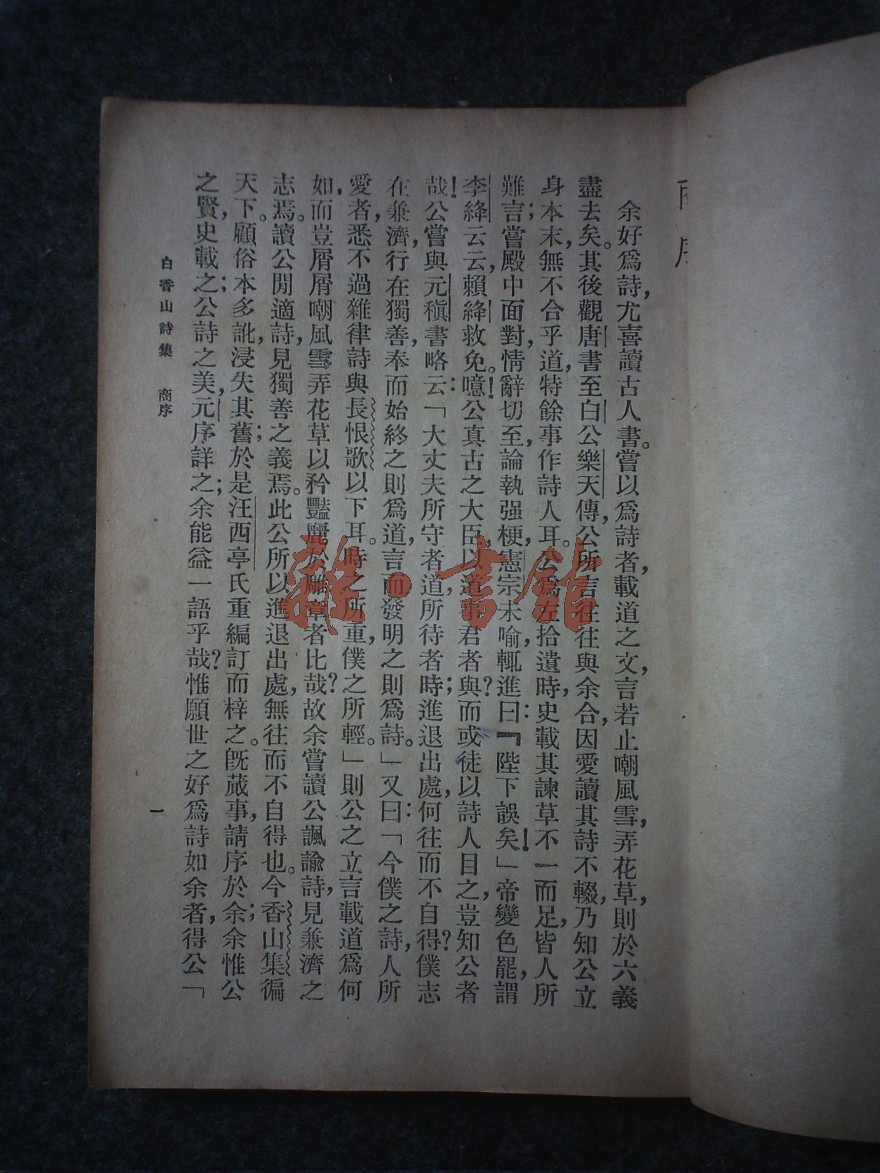 商序
余好爲詩,尤喜讀古人書。嘗以爲詩者,載道之文,言若止嘲風雪,弄花草,則於六義
盡去矣。其後觀唐書至白公樂天傳,公所言往往與余合,因愛讀其詩不輟,乃知公立
身本末,無不合乎道,特餘事作詩人耳。公爲左拾遺時,史載其諫草不一而足,皆人所
難言;嘗殿中面對,情辭切至,論執强梗,憲宗未喻,輒進曰:『陛下誤矣!」帝變色罷,謂
李絳云云,賴絳救免。噫!公真古之大臣,以道事君者與?而或徒以詩人目之,豈知公者
哉!公嘗與元稹書略云:「大丈夫所守者道,所待者時;進退出處,何往而不自得?僕志
在兼濟,行在獨善,奉而始終之則爲道,言而發明之則爲詩。」又曰:「今僕之詩,人所
愛者,悉不過雜律詩與長恨歌以下耳。時之所重,僕之所輕。」則公之立言載道爲何
如,而豈屑屑嘲風雪,弄花草,以矜豔麗於雕章者比哉?故余嘗讀公諷諭詩,見兼濟之
志焉。讀公閒適詩,見獨善之義焉。此公所以進退出處,無往而不自得也。今香山集徧
天下。顧俗本多訛,浸失其舊;於是汪西亭氏重編訂而梓之。旣蕆事,請序於余;余惟公
之賢,史載之;公詩之美,元序詳之;余能益一語乎哉?惟願世之好爲詩如余者,得公「
白香山詩集 商序
一
雜·書館